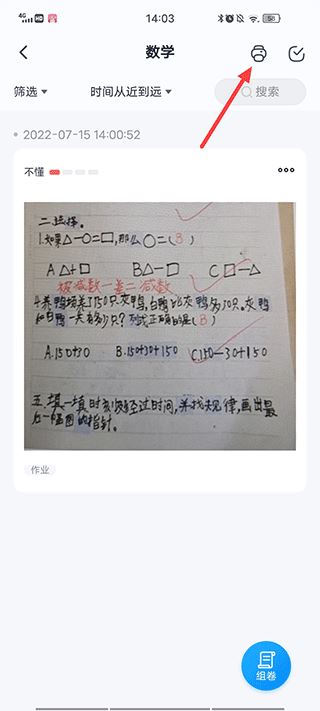 4G HD
14:03
58
数学
筛选
时间从近到远
搜索
2022-07-15 14:00:52
不懂
二.选择。
1.如果△-○=□,那么○=(B)
A △+□ B△-□ C □-△
被减数-差=减数
4.养鸭场养了150只灰鸭,白鸭比灰鸭多30只,灰鸭
和白鸭一共有多少只?列式正确的是(B)
A.150+30 B.150+30+150 C.150-30+150
五.填一填时刻或经过时间,并找规律,画出最
后一幅图的指针。
作业
组卷